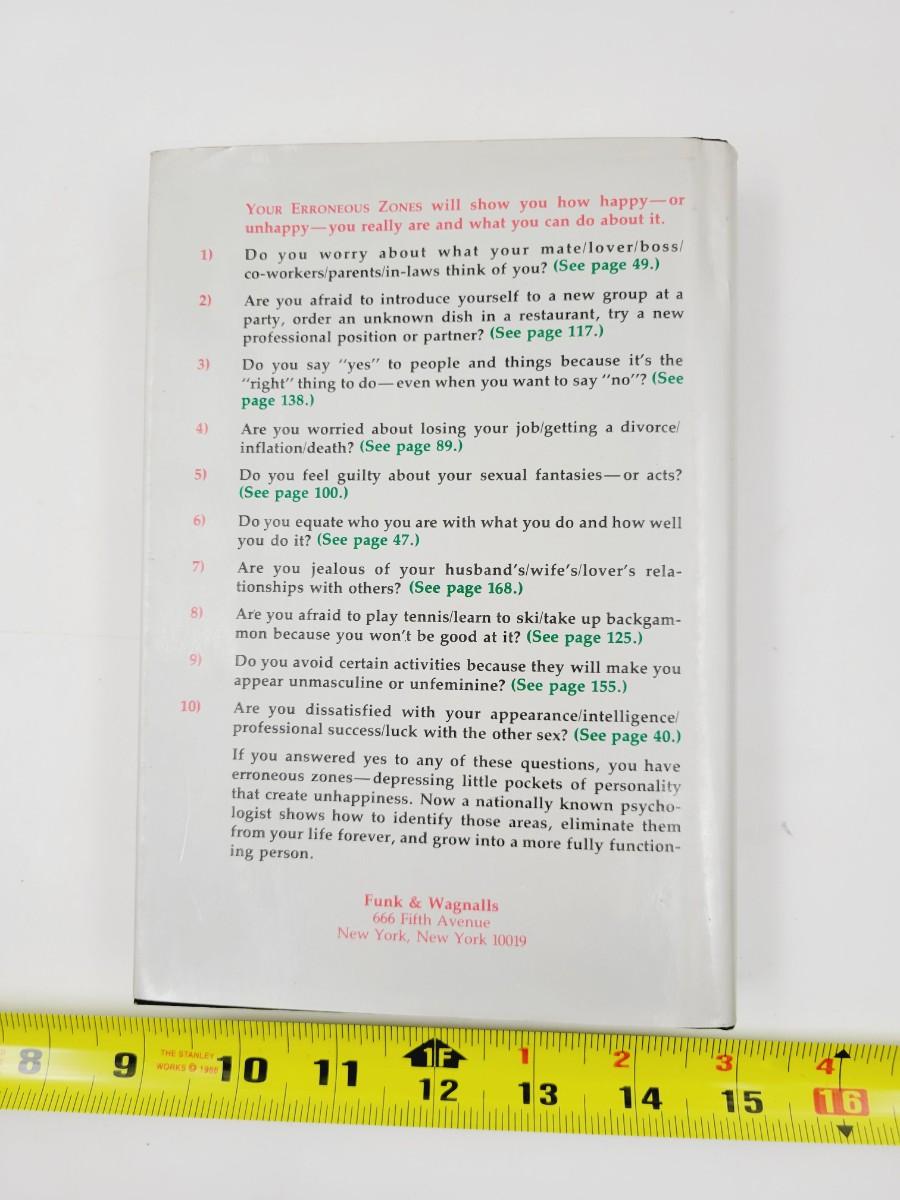 YOUR ERRONEOUS ZONES will show you how happy—or
unhappy—you really are and what you can do about it.
1) Do you worry about what your mate/lover/boss/
co-workers/parents/in-laws think of you? (See page 49.)
2) Are you afraid to introduce yourself to a new group at a
party, order an unknown dish in a restaurant, try a new
professional position or partner? (See page 117.)
3) Do you say "yes" to people and things because it's the
"right" thing to do—even when you want to say "no"? (See
page 138.)
4) Are you worried about losing your job/getting a divorce/
inflation/death? (See page 89.)
5) Do you feel guilty about your sexual fantasies—or acts?
(See page 100.)
6) Do you equate who you are with what you do and how well
you do it? (See page 47.)
7) Are you jealous of your husband's/wife's/lover's rela-
tionships with others? (See page 168.)
8) Are you afraid to play tennis/learn to ski/take up backgam-
mon because you won't be good at it? (See page 125.)
9) Do you avoid certain activities because they will make you
appear unmasculine or unfeminine? (See page 155.)
10) Are you dissatisfied with your appearance/intelligence/
professional success/luck with the other sex? (See page 40.)
If you answered yes to any of these questions, you have
erroneous zones—depressing little pockets of personality
that create unhappiness. Now a nationally known psycho-
logist shows how to identify those areas, eliminate them
from your life forever, and grow into a more fully function-
ing person.
Funk & Wagnalls
666 Fifth Avenue
New York, New York 10019
1F 1 2 3 4
THE STANLEY
WORKS ©
8 9 10 11 12 13 14 15 16